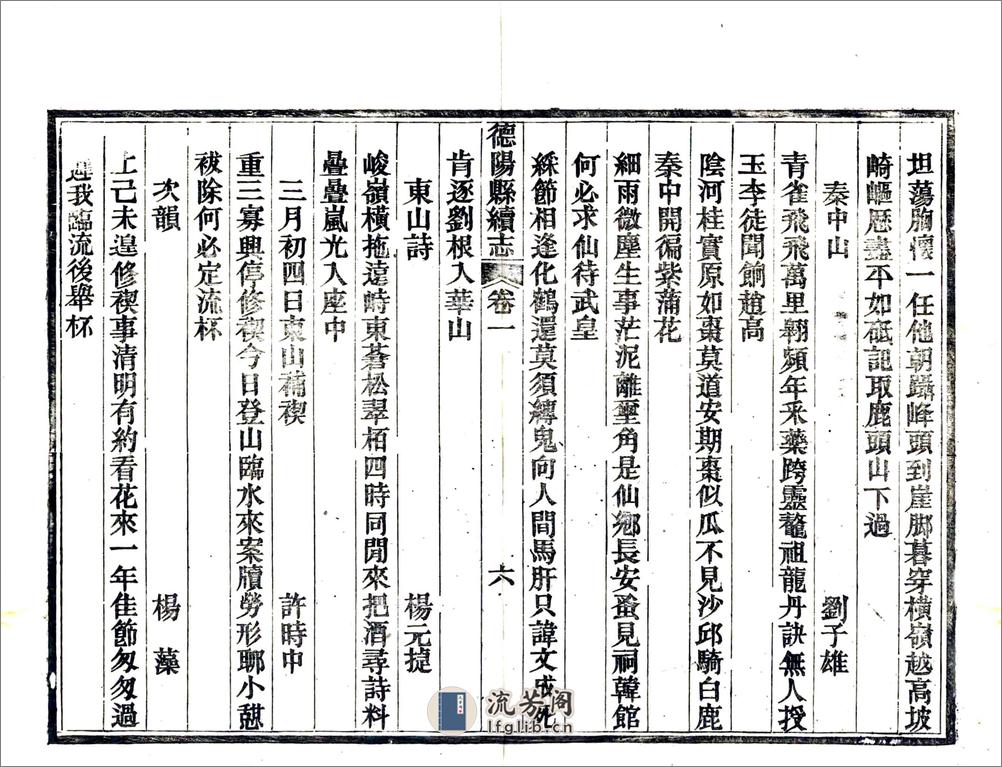 坦蕩胸懷一任他朝躡峰頭到崖脚暮穿橫嶺越高坡
崎嶇歷盡平如砥記取鹿頭山下過
秦中山 劉子雄
青雀飛飛萬里翱頻年釆藥跨靈鼇祖龍丹訣無人授
玉李徒聞餉趙高
陰河桂實原如棗莫道安期棗似瓜不見沙邱騎白鹿
秦中開徧紫蒲花
細雨微塵生事茫泥離壐角是仙鄉長安蚤見祠韓館
何必求仙待武皇
綵節相逢化鶴還莫須縛鬼向人間馬肝只諱文成死
肯逐劉根入華山
東山詩 楊元揵
峻嶺橫拖遠峙東蒼松翠栢四時同閒來把酒尋詩料
疊疊嵐光入座中
三月初四日東山補禊 許時中
重三寡興停修禊今日登山臨水來案牘勞形聊小憩
祓除何必定流杯
次韻 楊藻
上已未遑修禊事清明有約看花來一年佳節匆匆過
遲我臨流後舉杯
德陽縣續志 卷一 六
流芳阁
lfglib.cn